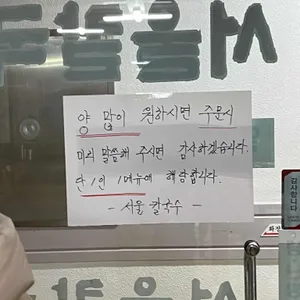 양 많이 원하시면 주문시
미리 말씀해 주시면 감사하겠습니다.
단 1인 1메뉴에 해당합니다.
- 서울 칼국수 -
감사합니다